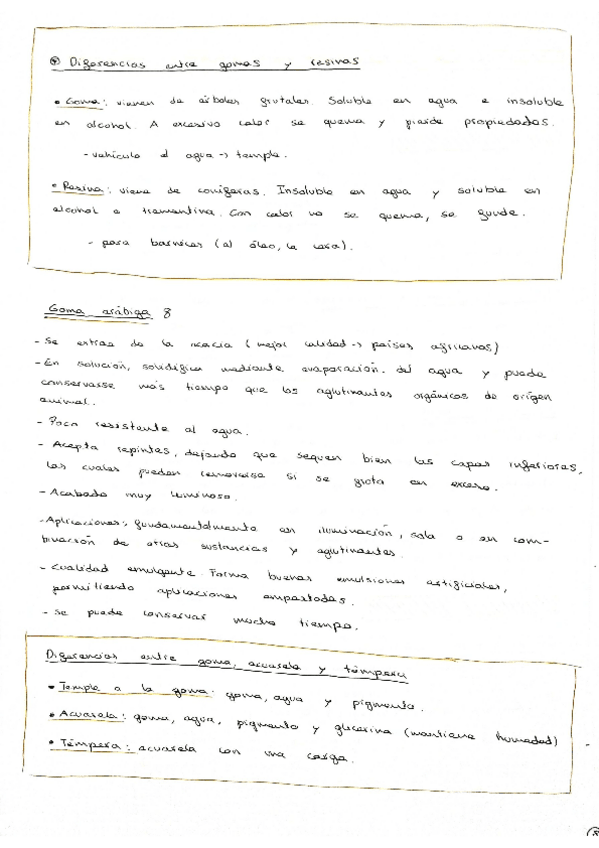 ⊛ Diferencias entre gomas y resinas
• Goma: vienen de árboles frutales. Soluble en agua e insoluble
en alcohol. A excesivo calor se quema y pierde propiedades.
- vehículo el agua -> temple.
• Resina: viene de coníferas. Insoluble en agua y soluble en
alcohol o trementina. Con calor no se quema, se funde.
- para barnices (al óleo, la cera).
Goma arábiga 8
- Se extrae de la acacia (mejor calidad -> países africanos)
- En solución, solidifica mediante evaporación del agua y puede
conservarse más tiempo que los aglutinantes orgánicos de origen
animal.
- Poco resistente al agua.
- Acepta repintes, dejando que sequen bien las capas inferiores,
las cuales pueden removerse si se frota en exceso.
- Acabado muy luminoso.
- Aplicaciones: fundamentalmente en iluminación, sola o en com-
binación de otras sustancias y aglutinantes.
- Cualidad emulgente. Forma buenas emulsiones artificiales,
permitiendo aplicaciones empastadas.
- Se puede conservar mucho tiempo.
Diferencias entre goma, acuarela y témpera
• Temple a la goma: goma, agua y pigmento.
• Acuarela: goma, agua, pigmento y glicerina (mantiene humedad)
• Témpera: acuarela con una carga.